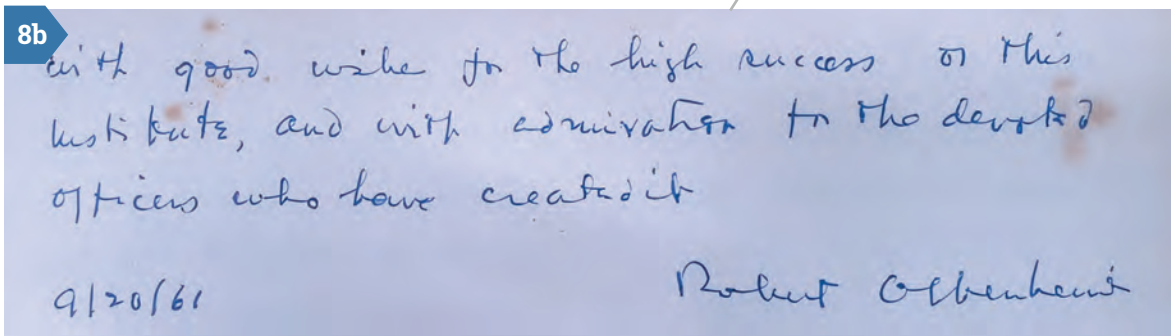 8b
with good wishes for the high success of this
Institute, and with admiration for the devoted
officers who have created it
9/20/61
Robert Oppenheimer